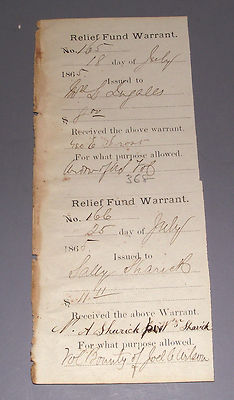 Relief Fund Warrant.
No. 165
18 day of July
1865
Issued to
Mrs L
$
Received the above warrant.
Geo E
For what purpose allowed.
of
365
Relief Fund Warrant.
No. 166
25 day of July
186
Issued to
Sally Sharick
$ 11
Received the above warrant.
N. A Shurick for Sharick
For what purpose allowed.
Vol Bounty of Joel